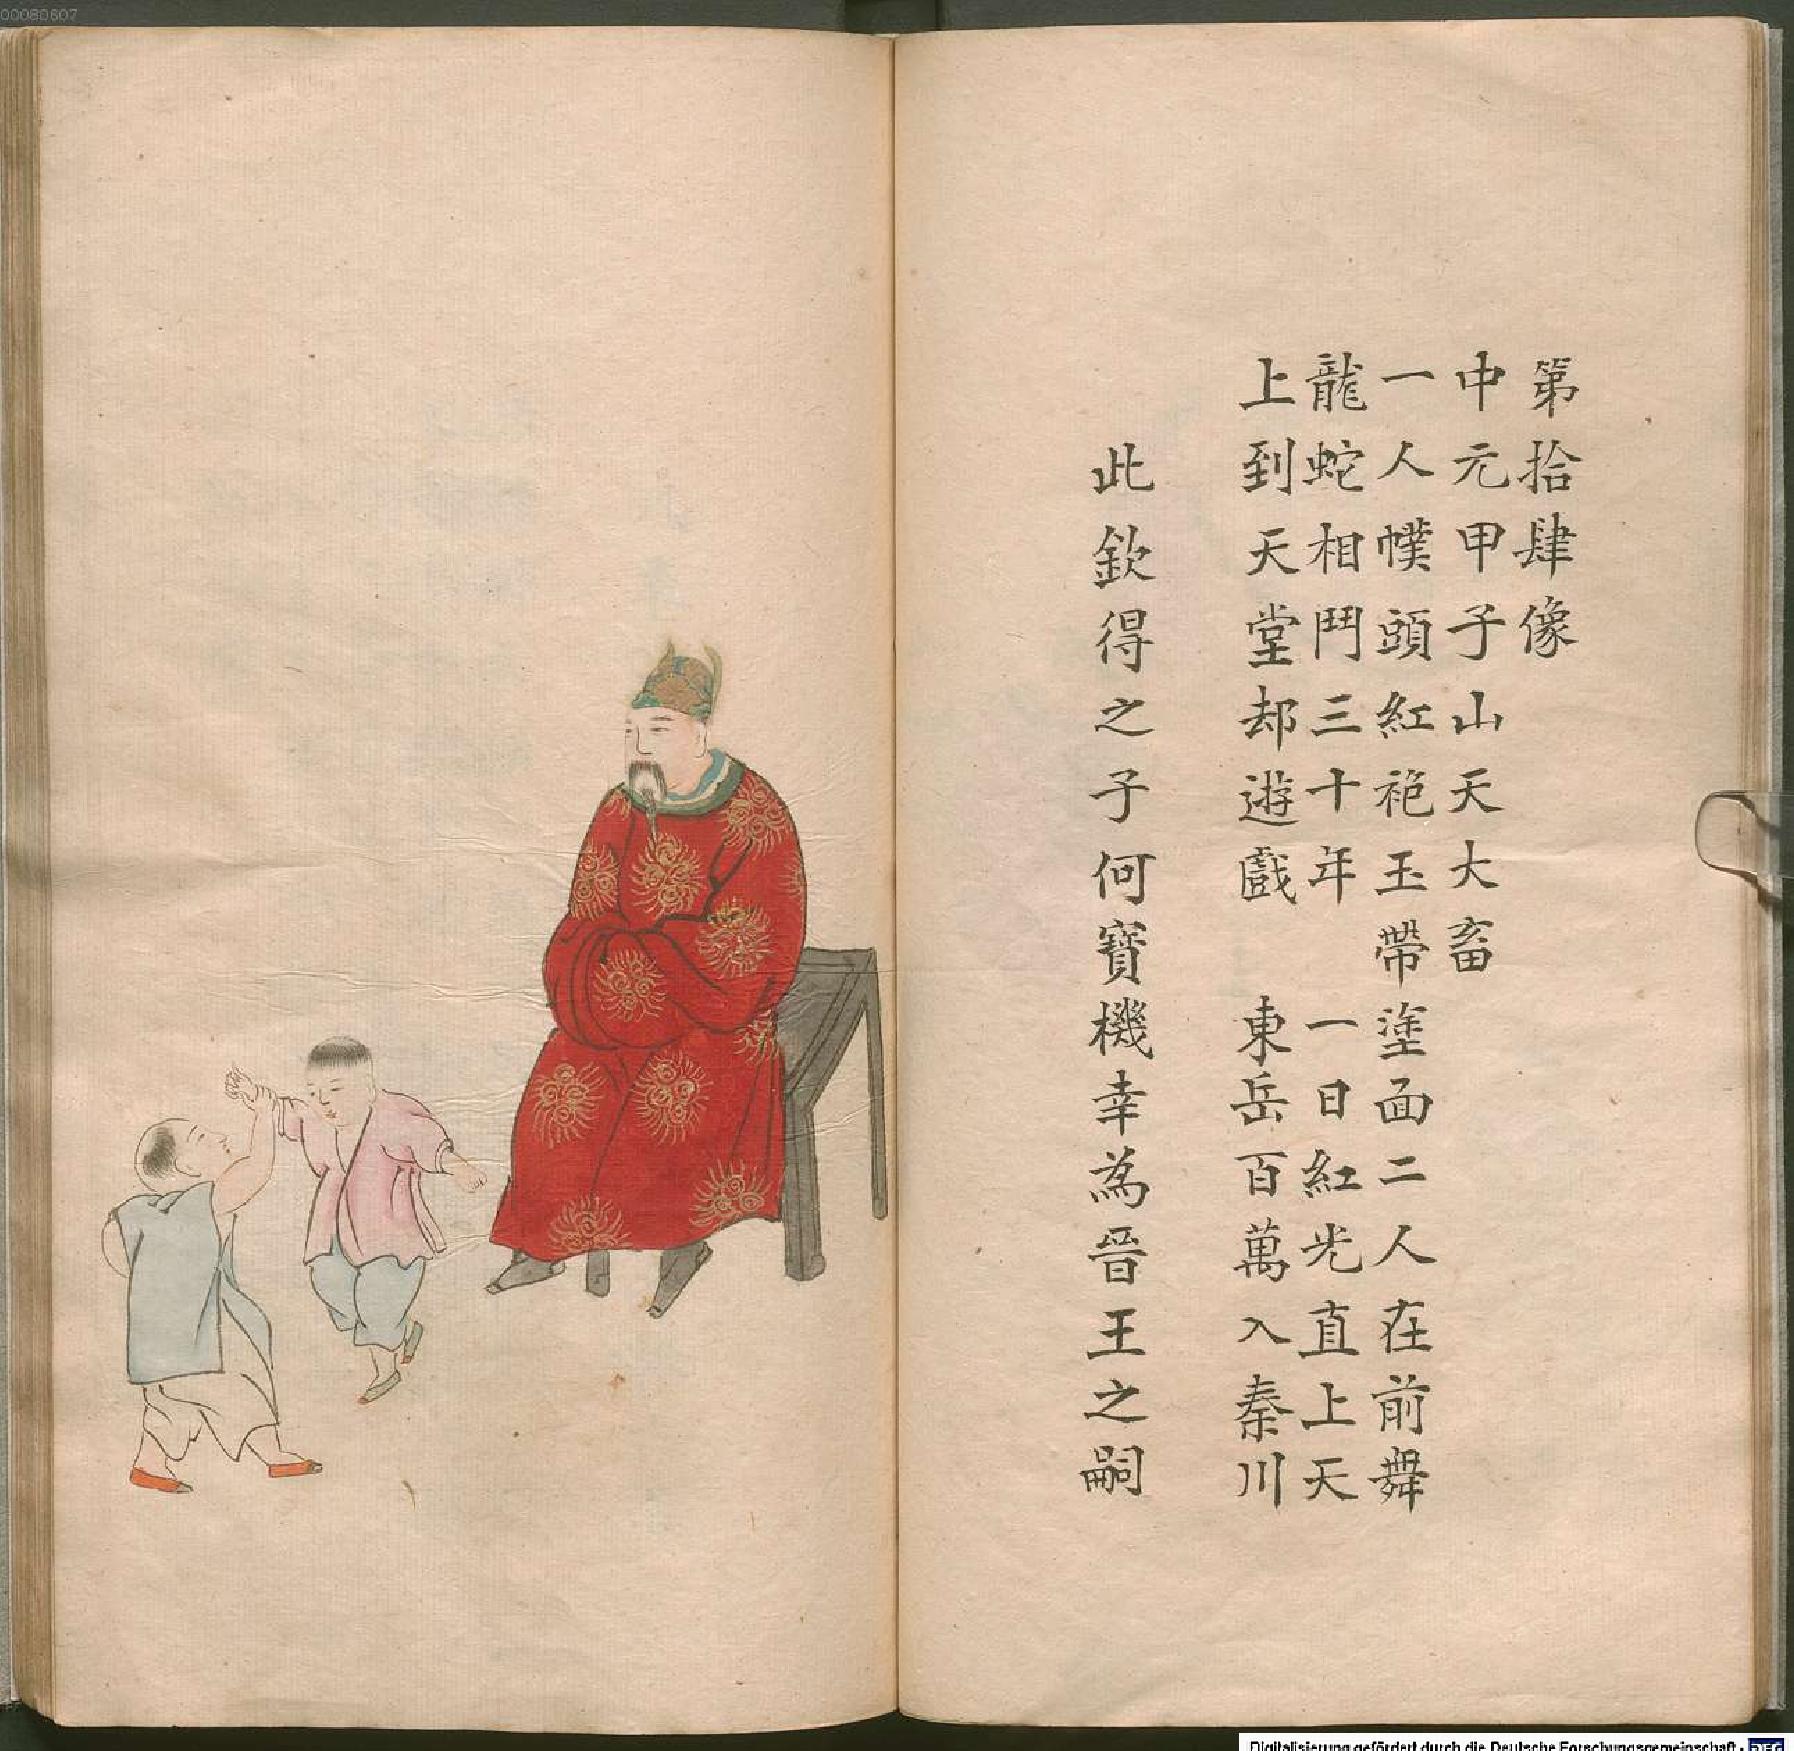 00080607
第拾肆像
中元甲子山天大畜
一人幞頭紅袍玉帶塗面二人在前舞
龍蛇相鬥三十年 一日紅光直上天
上到天堂却遊戲 東岳百萬入秦川
此欽得之子何寶機幸為晉王之嗣
Digitalisierung gefördert durch die Deutsche Forschungsgemeinschaft - DFG